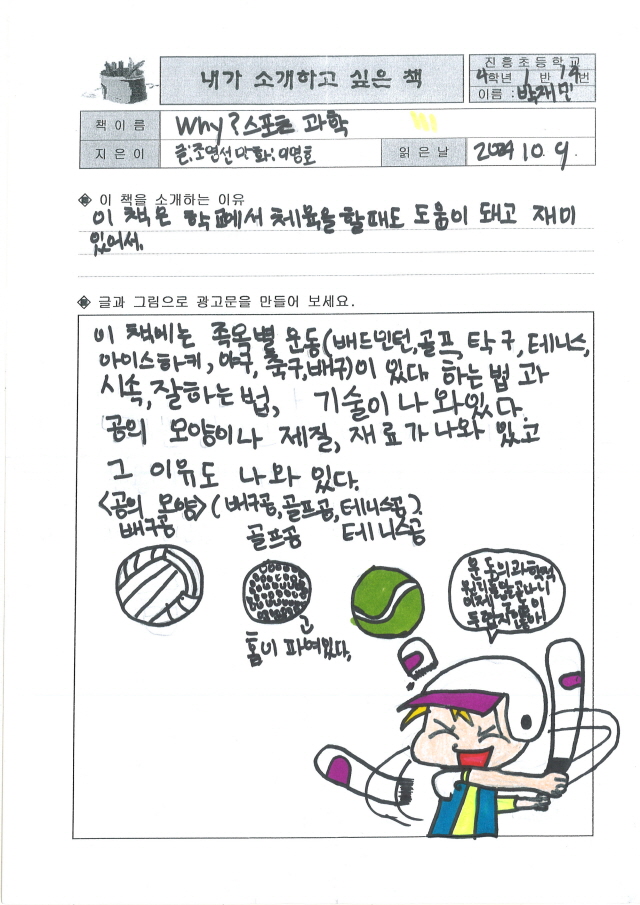 내가 소개하고 싶은 책
진흥초등학교
4학년 1 반 14번
이름 : 박재민
책 이름 Why? 스포츠 과학
지은이 글:조영선 만화:이영호 읽은 날 2024 10. 9.
이 책을 소개하는 이유
이 책은 학교에서 체육을 할때도 도움이 돼고 재미
있어서.
글과 그림으로 광고문을 만들어 보세요.
이 책에는 족목별 운동(배드민턴,골프, 탁구, 테니스,
아이스하키, 야구, 축구,배구)이 있다. 하는 법 과
시속, 잘하는 법, 기술이 나와있다.
공의 모양이나 제질, 재료가 나와 있고
그 이유도 나와 있다.
<공의 모양> (배구공, 골프공, 테니스공).
배구공 골프공 테니스공
홈이 파여있다.
운동의 과학적
원리를 알고나니